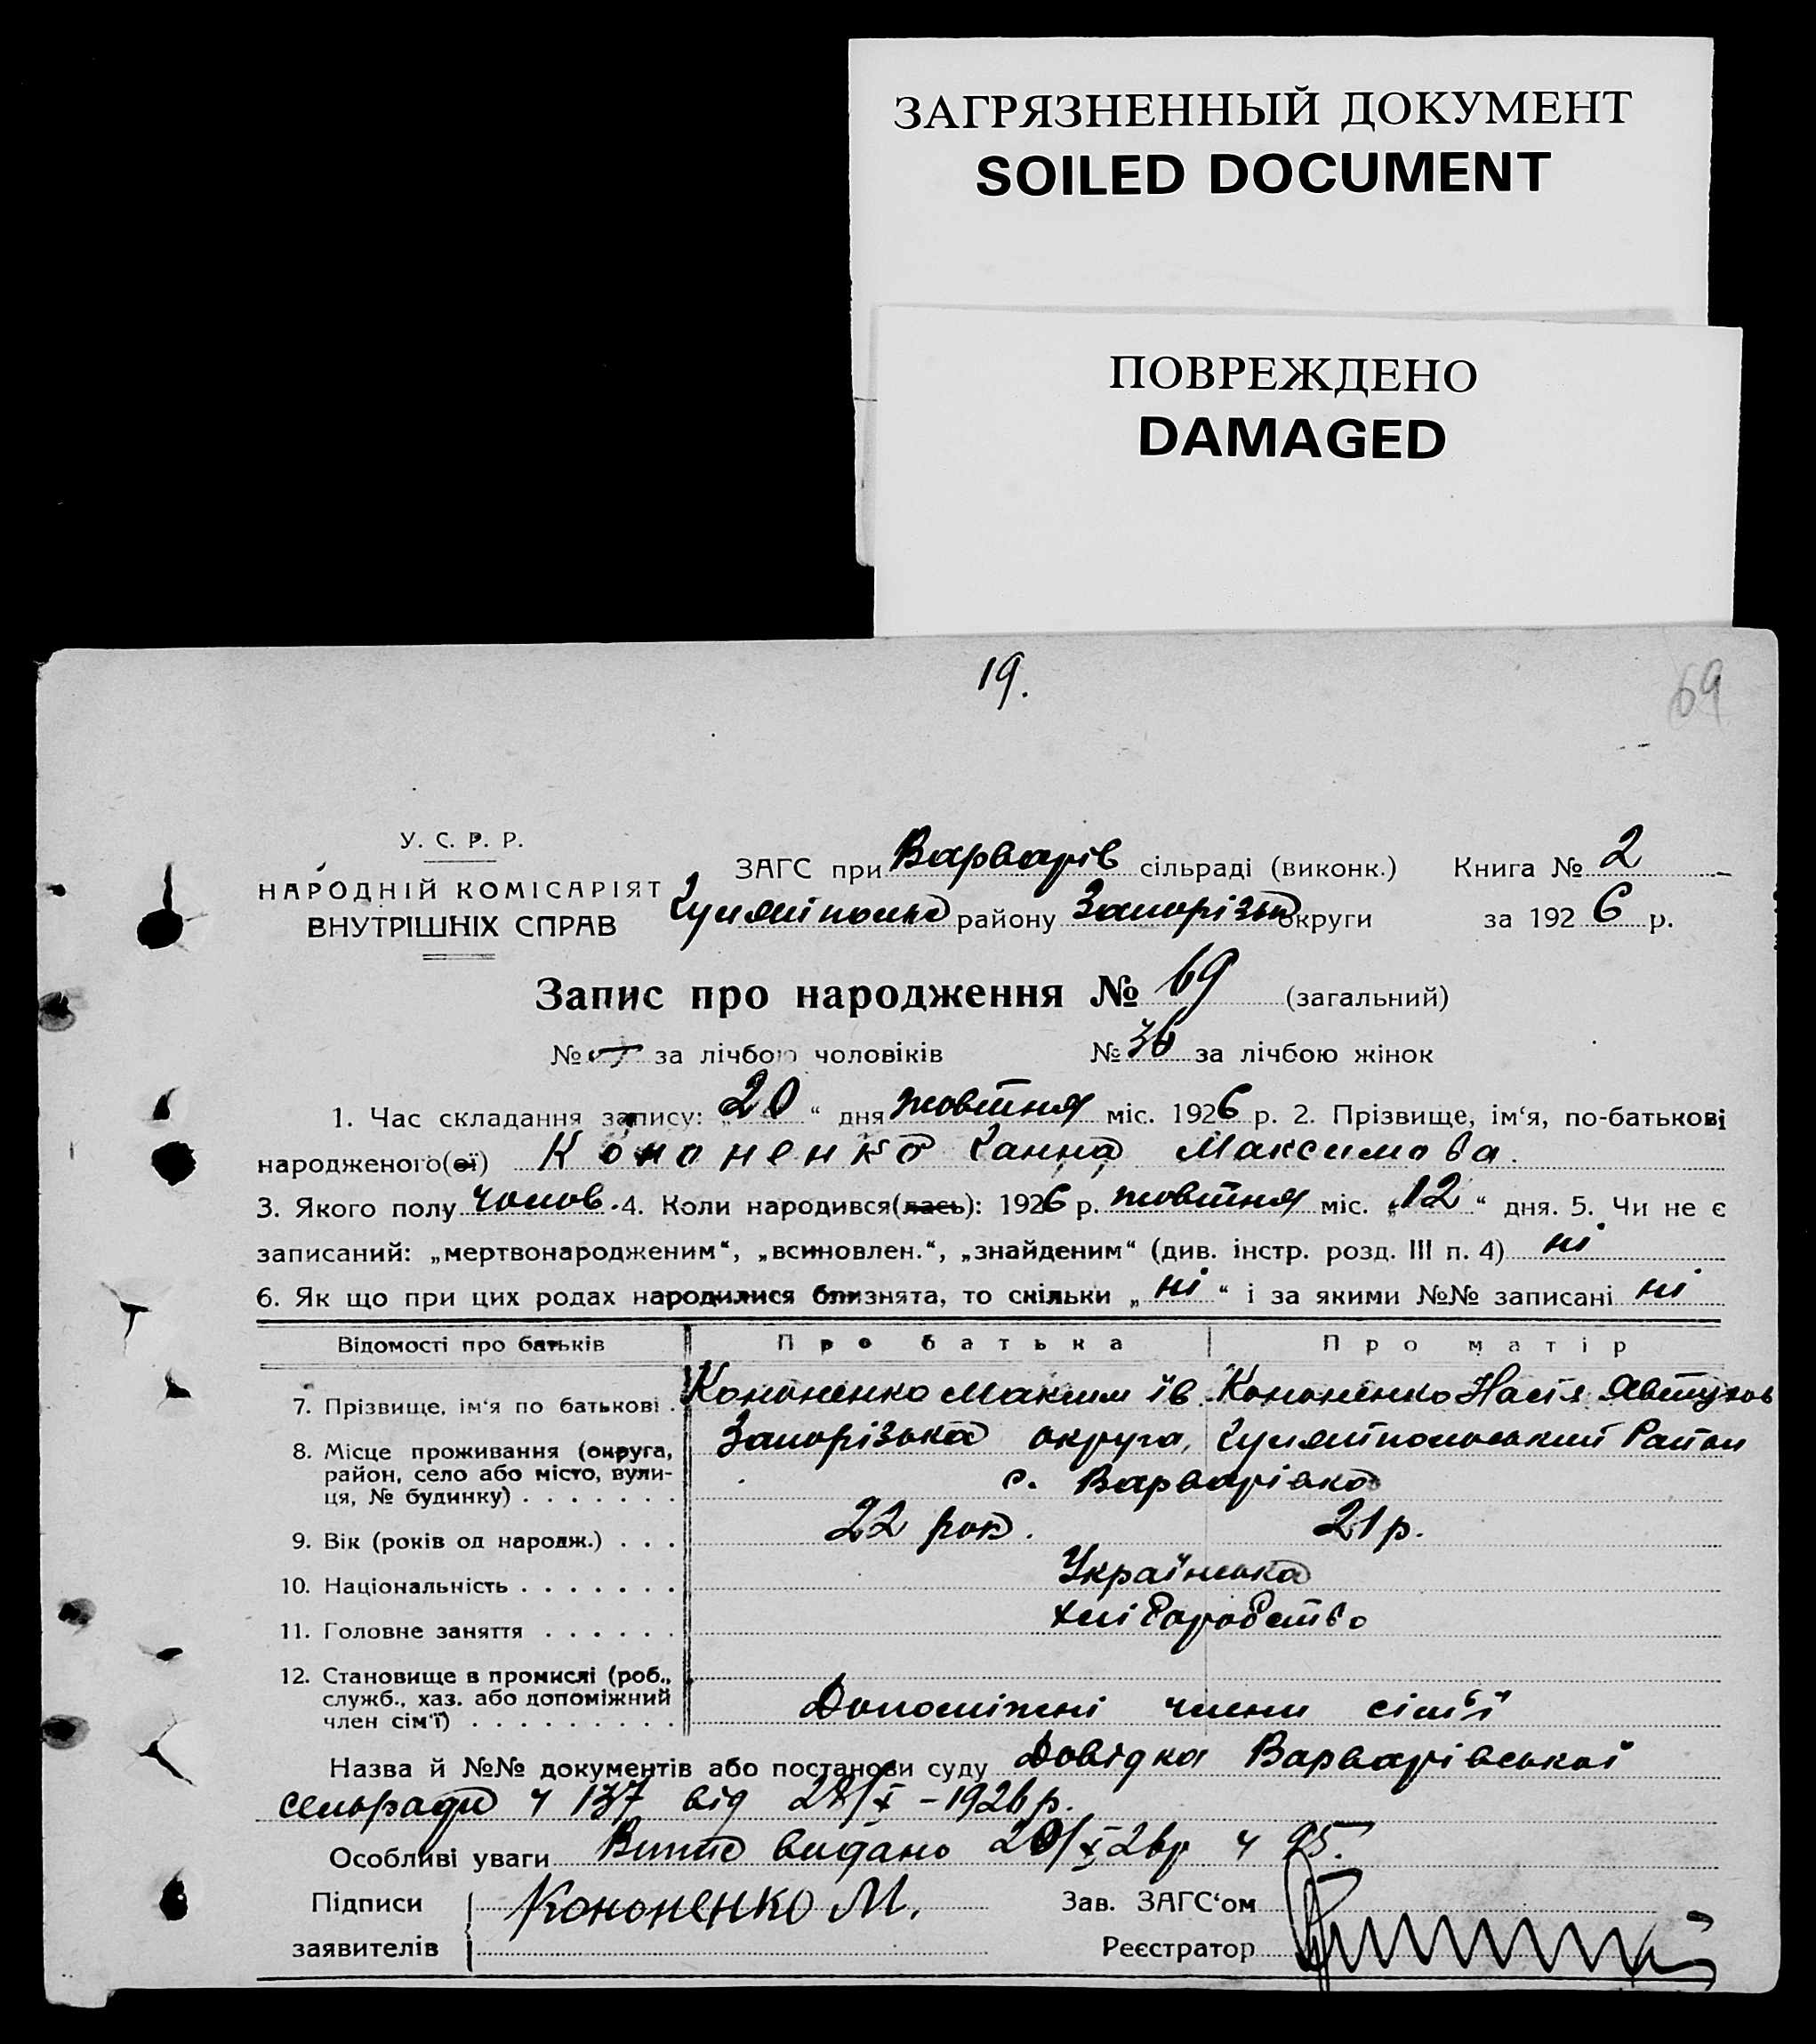 ЗАГРЯЗНЕННЫЙ ДОКУМЕНТ
SOILED DOCUMENT
ПОВРЕЖДЕНО
DAMAGED
19.
69
У. С. Р. Р.
НАРОДНІЙ КОМІСАРІЯТ
ВНУТРІШНІХ СПРАВ
ЗАГС при Варварів сільраді (виконк.) Книга № 2
району округи за 1926 р.
Запис про народження № 69 (загальний)
№ за лічбою чоловіків № 36 за лічбою жінок
1. Час складання запису: „20“ дня жовтня міс. 1926 р. 2. Прізвище, ім‘я, по-батькові
народженого(ої) Кононенко Ганна Максимова.
3. Якого полу чолов. 4. Коли народився(лась): 1926 р. жовтня міс. „12“ дня. 5. Чи не є
записаний: „мертвонародженим“, „всиновлен.“, „знайденим“ (див. інстр. розд. III п. 4) ні
6. Як що при цих родах народилися близнята, то скільки „ні“ і за якими №№ записані ні
Відомості про батьків Про батька Про матір
7. Прізвище, ім‘я по батькові . Кононенко Максим Ів. Кононенко Настя Явтухов
8. Місце проживання (округа, Запорізька округа, Гуляйпольський Район
район, село або місто, вули- с. Варварівка
ця, № будинку) . . . . . . .
9. Вік (років од народж.) . . . 22 рок. 21 р.
10. Національність . . . . . . . Українська
11. Головне заняття . . . . . . хліборобство
12. Становище в промислі (роб.,
служб., хаз. або допоміжний
член сім‘ї) . . . . . . . . . Допоміжні члени сім‘ї
Назва й №№ документів або постанови суду Довідка Варварівської
сельради ч 137 від /X – 1926 р.
Особливі уваги видано 20/X 26 р ч 95.
Підписи Кононенко М. Зав. ЗАГС‘ом
заявителів Реєстратор